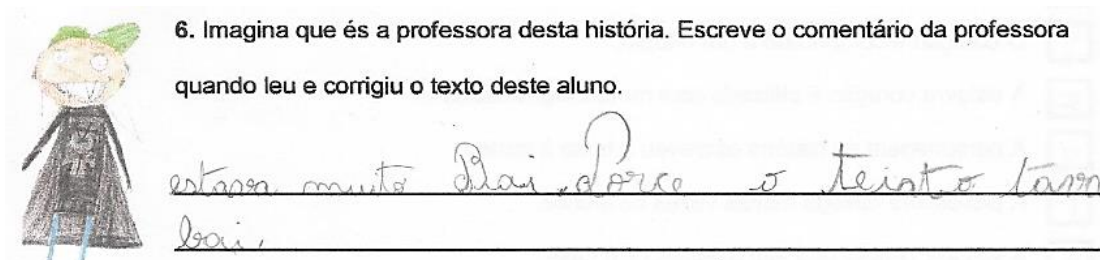 6. Imagina que és a professora desta história. Escreve o comentário da professora
quando leu e corrigiu o texto deste aluno.
estava muito Bai. Porce o teisto tava
bai.